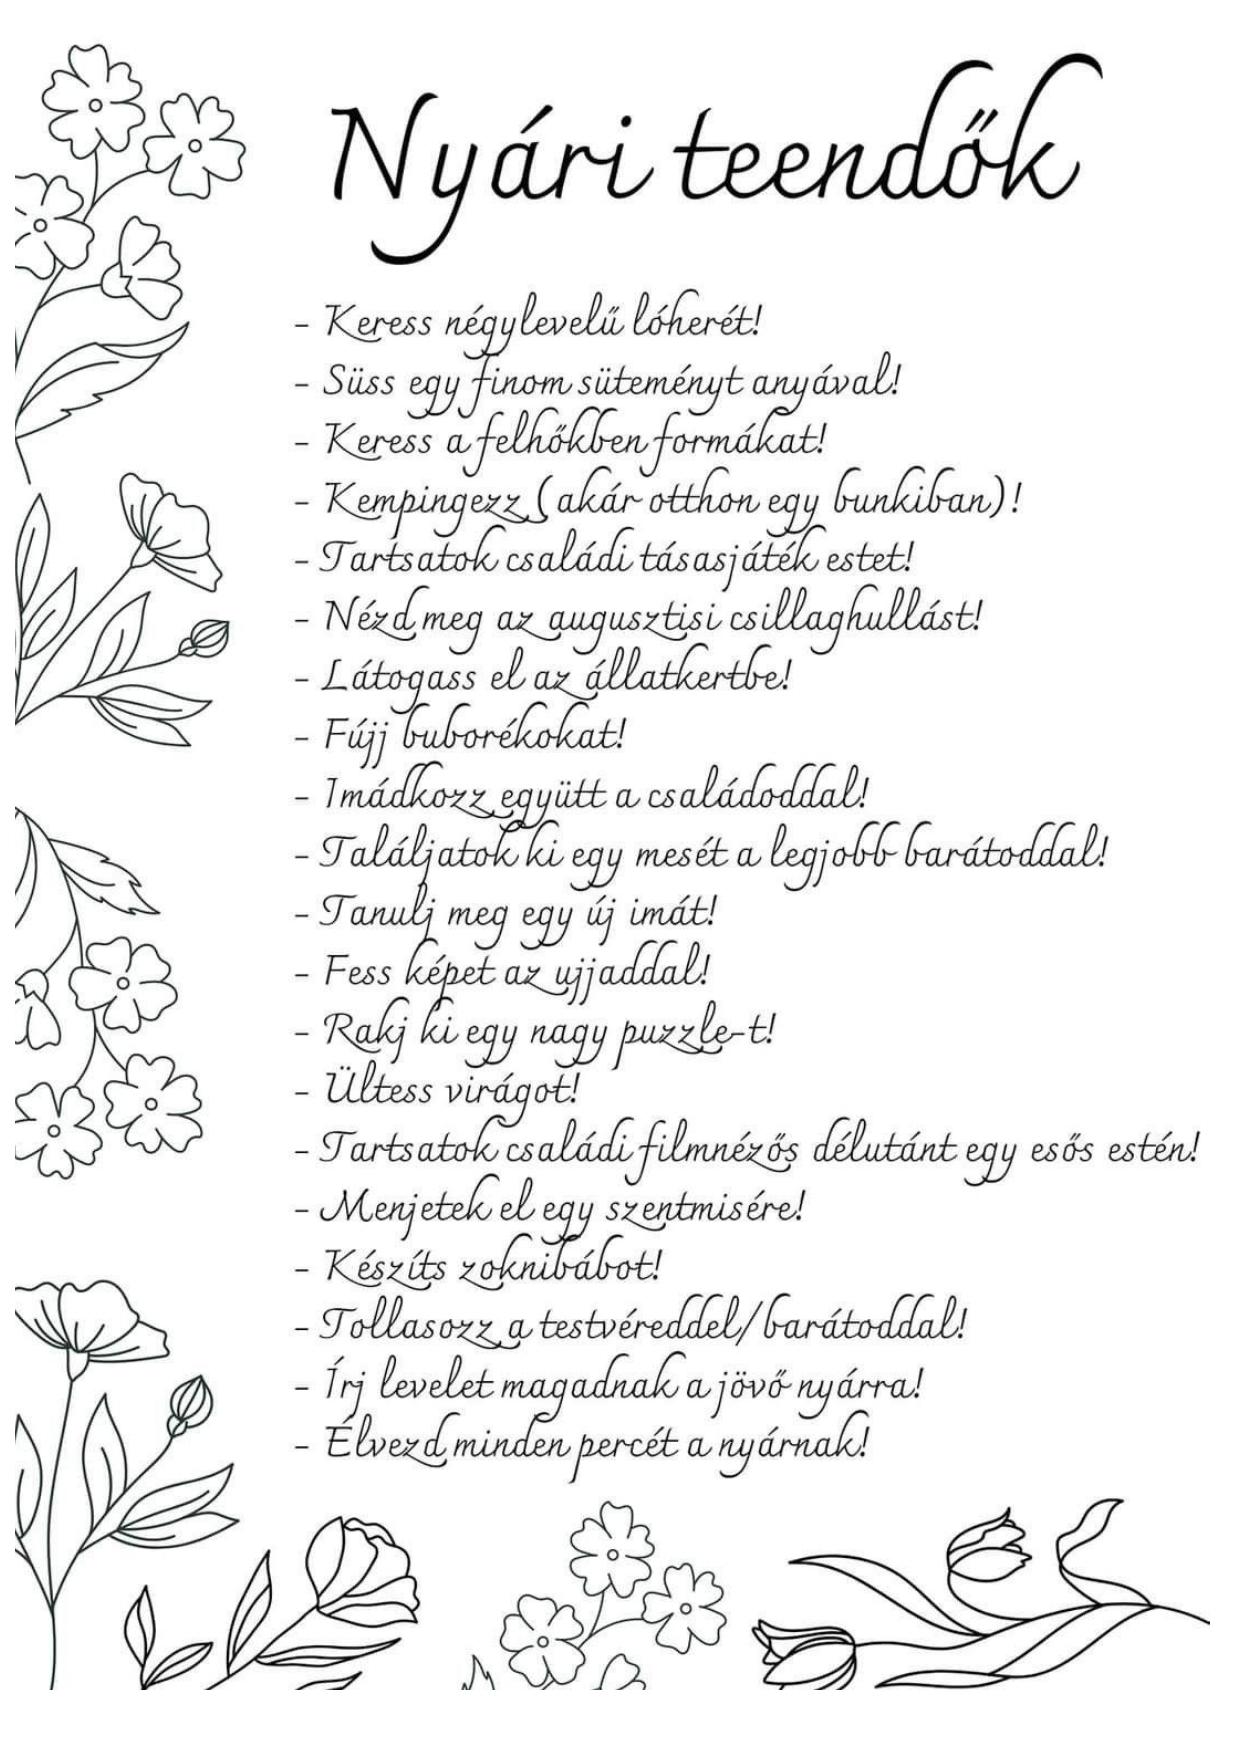 Nyári teendők
- Keress négylevelű lóherét!
- Süss egy finom süteményt anyával!
- Keress a felhőkben formákat!
- Kempingezz (akár otthon egy bunkiban)!
- Tartsatok családi tásasjáték estet!
- Nézd meg az augusztisi csillaghullást!
- Látogass el az állatkertbe!
- Fújj buborékokat!
- Imádkozz együtt a családoddal!
- Találjatok ki egy mesét a legjobb barátoddal!
- Tanulj meg egy új imát!
- Fess képet az ujjaddal!
- Rakj ki egy nagy puzzle-t!
- Ültess virágot!
- Tartsatok családi filmnézős délutánt egy esős estén!
- Menjetek el egy szentmisére!
- Készíts zoknibábot!
- Tollasozz a testvéreddel/barátoddal!
- Írj levelet magadnak a jövő nyárra!
- Élvezd minden percét a nyárnak!